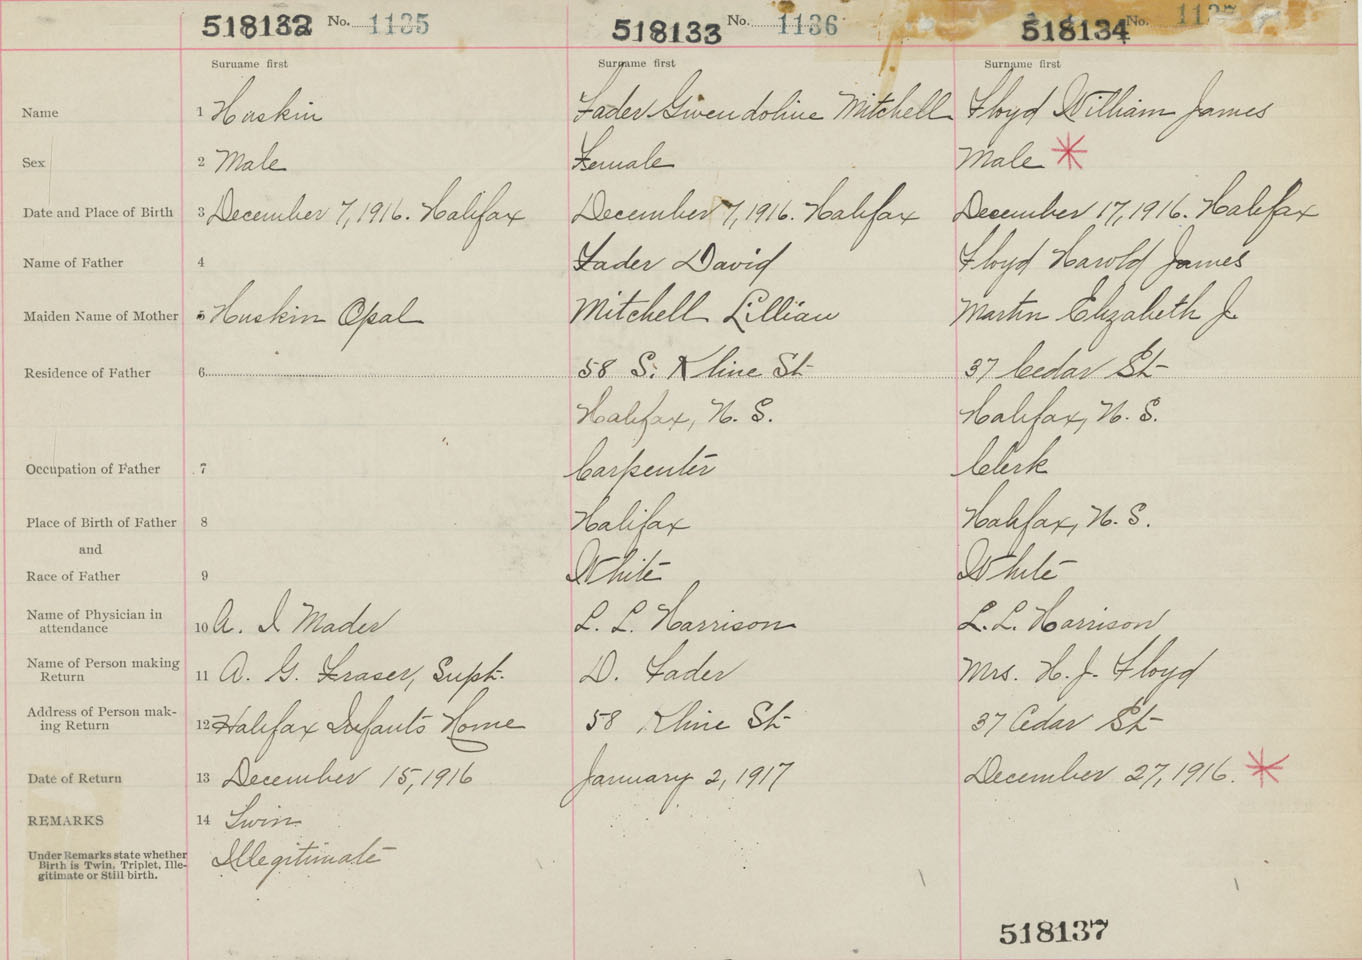 518132 No. 1135 518133 No. 1136 518134 No.
Surname first Surname first Surname first
Name 1 Huskin Fader Gwendoline Mitchell Floyd William James
Sex 2 Male Female Male
Date and Place of Birth 3 December 7, 1916. Halifax December 7, 1916. Halifax December 17, 1916. Halifax
Name of Father 4 Fader David Floyd Harold James
Maiden Name of Mother 5 Huskin Opal Mitchell Lillian Martin Elizabeth J.
Residence of Father 6 58 S. Kline St 37 Cedar St
Halifax, N. S. Halifax, N. S.
Occupation of Father 7 Carpenter Clerk
Place of Birth of Father 8 Halifax Halifax, N. S.
and
Race of Father 9 White White
Name of Physician in
attendance 10 A. I Mader L. L. Harrison L. L. Harrison
Name of Person making
Return 11 A. G. Fraser, Supt. D. Fader Mrs. H. J. Floyd
Address of Person mak-
ing Return 12 Halifax Infants Home 58 Kline St 37 Cedar St
Date of Return 13 December 15, 1916 January 2, 1917 December 27, 1916.
REMARKS 14 Twin
Under Remarks state whether Illegitimate
Birth is Twin, Triplet, Ille-
gitimate or Still birth.
518137